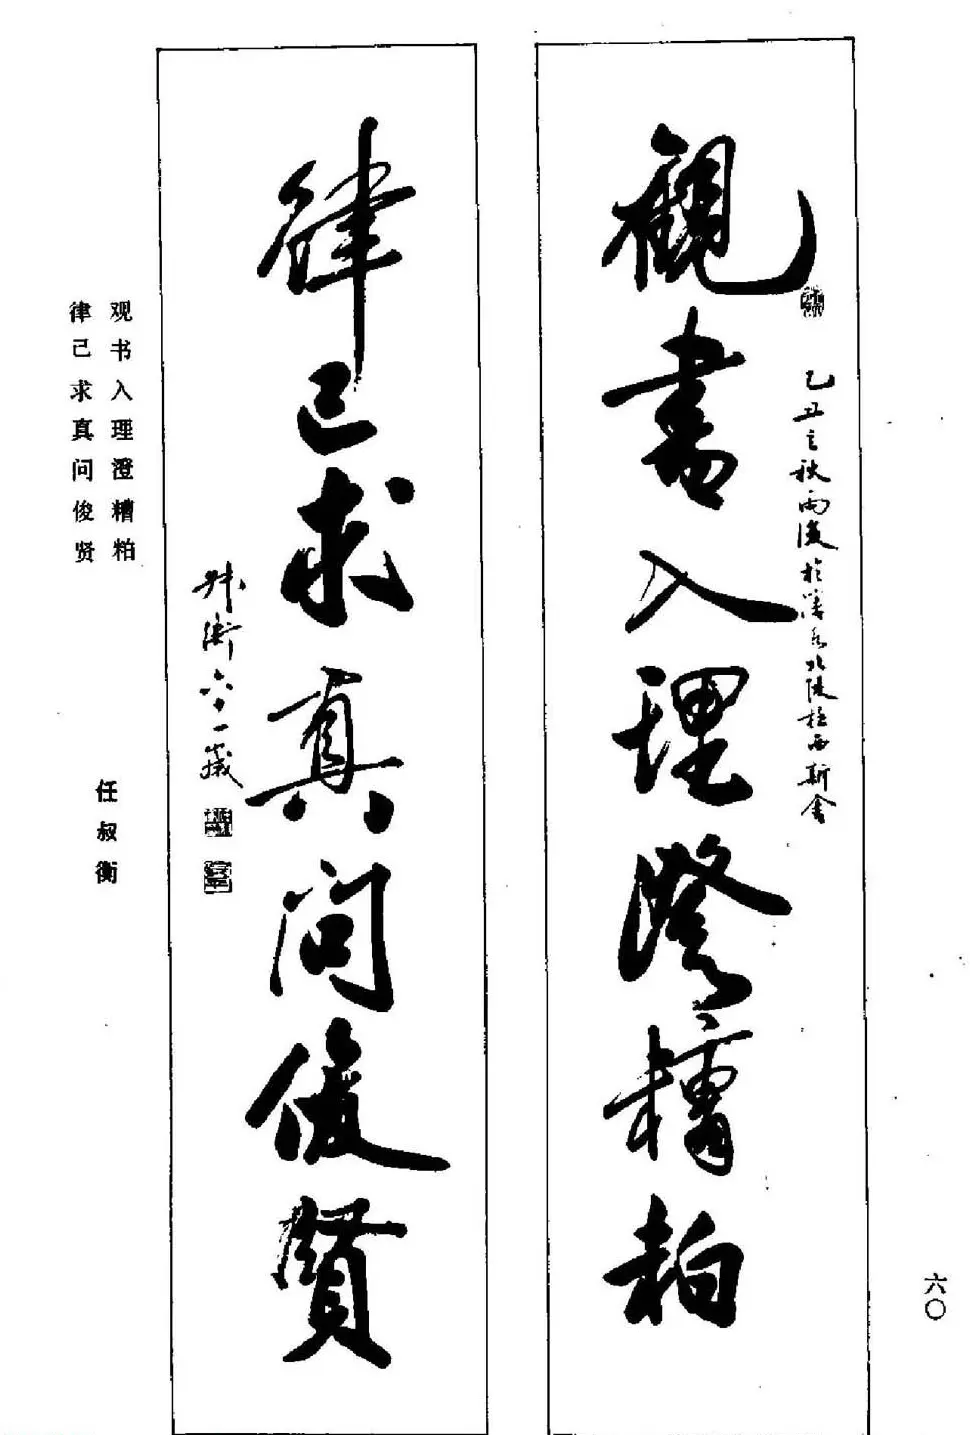 觀書入理澄糟粕
乙丑之秋雨後於瀋水北陵拉西斯舍
律己求真問俊賢
叔衡六十一歲
观书入理澄糟粕
律己求真问俊贤
任叔衡
六〇